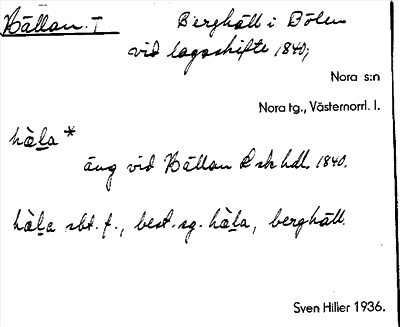 Hällan. T Berghäll i Bölen
vid lagaskifte 1840;
Nora s:n
Nora tg., Västernorrl. l.
hàla *
äng vid Hällan L sk hdl. 1840.
hàla sbt. f., best. sg. hàla, berghäll.
Sven Hilier 1936.